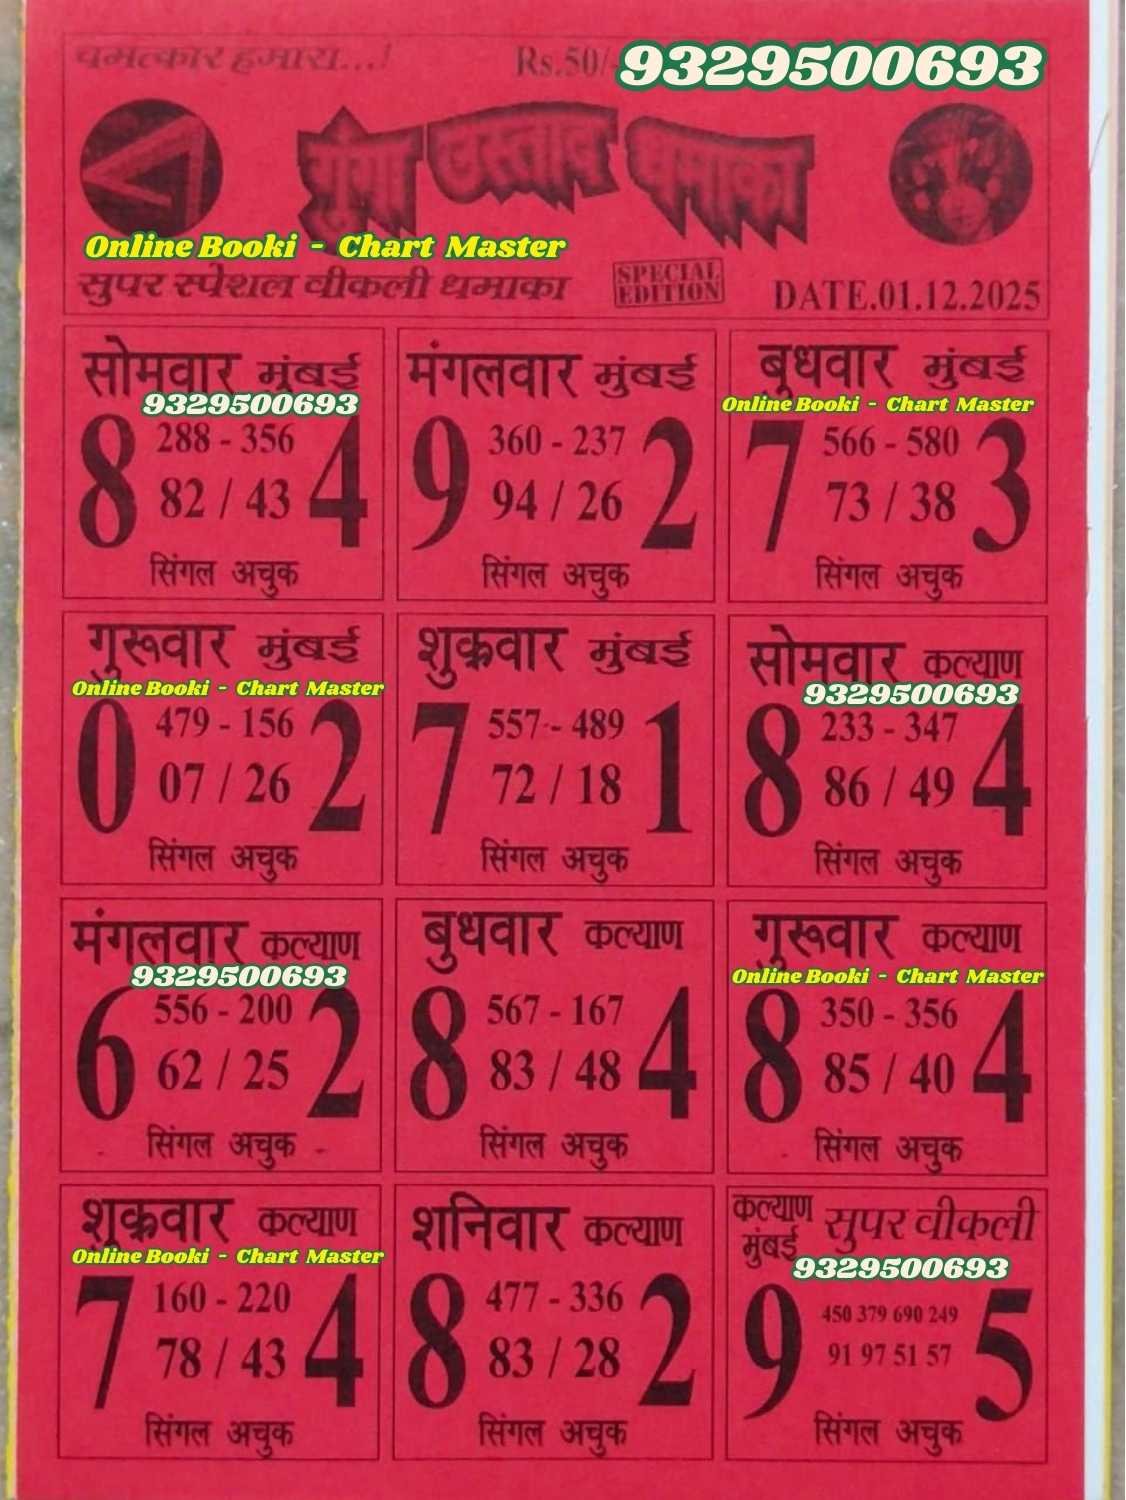 चमत्कार हमारा...!
Rs.50/-
9329500693
गुंगा उस्ताद धमाका
Online Booki - Chart Master
सुपर स्पेशल वीकली धमाका
SPECIAL
EDITION
DATE.01.12.2025
सोमवार मुंबई
9329500693
8 288 - 356 4
82 / 43
सिंगल अचुक
मंगलवार मुंबई
9 360 - 237 2
94 / 26
सिंगल अचुक
बुधवार मुंबई
Online Booki - Chart Master
7 566 - 580 3
73 / 38
सिंगल अचुक
गुरूवार मुंबई
Online Booki - Chart Master
0 479 - 156 2
07 / 26
सिंगल अचुक
शुक्रवार मुंबई
7 557 - 489 1
72 / 18
सिंगल अचुक
सोमवार कल्याण
9329500693
8 233 - 347 4
86 / 49
सिंगल अचुक
मंगलवार कल्याण
9329500693
6 556 - 200 2
62 / 25
सिंगल अचुक
बुधवार कल्याण
8 567 - 167 4
83 / 48
सिंगल अचुक
गुरूवार कल्याण
Online Booki - Chart Master
8 350 - 356 4
85 / 40
सिंगल अचुक
शुक्रवार कल्याण
Online Booki - Chart Master
7 160 - 220 4
78 / 43
सिंगल अचुक
शनिवार कल्याण
8 477 - 336 2
83 / 28
सिंगल अचुक
कल्याण
मुंबई
सुपर वीकली
9329500693
9 450 379 690 249 5
91 97 51 57
सिंगल अचुक